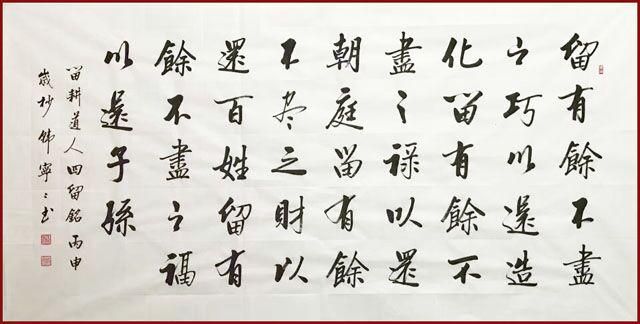 留有餘不盡
之巧以還造
化畄有餘不
盡之祿以還
朝庭畄有餘
不尽之財以
還百姓留有
餘不盡之福
以還子孫
畄耕道人四留銘丙申
歲杪韩寧〻书